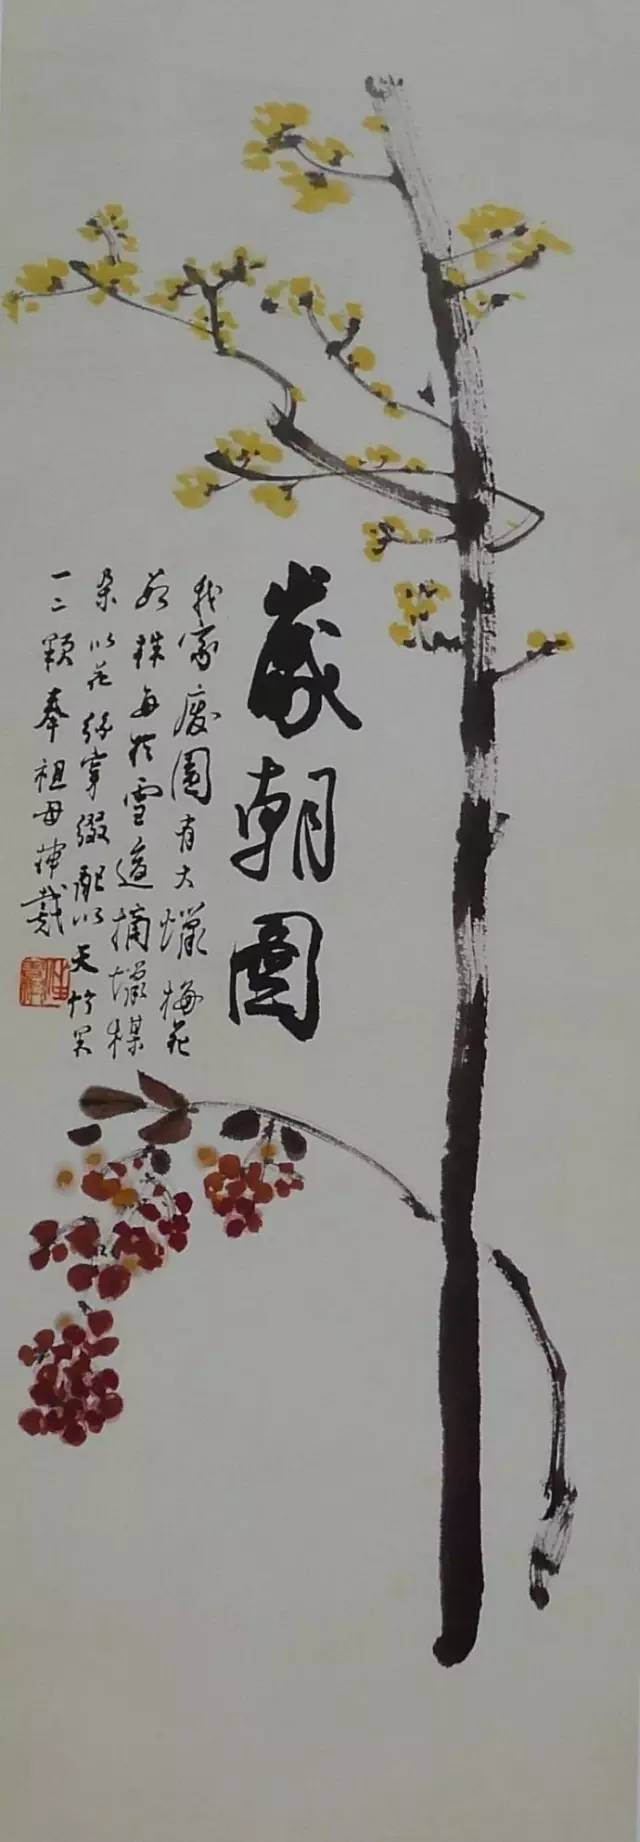 歲朝圖
我家廢園有大蠟梅花
數株每於雪後摘蠟梅
朵以花絲穿綴配以天竹果
一二顆奉祖母插戴